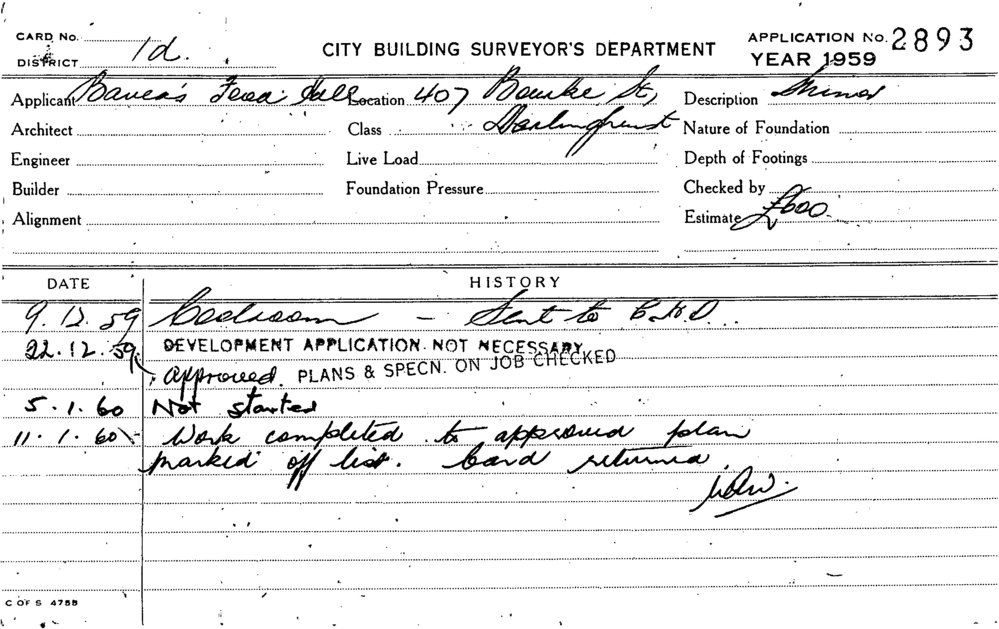 CARD No.
DISTRICT 1d.
CITY BUILDING SURVEYOR'S DEPARTMENT
APPLICATION No. 2893
YEAR 1959
Applicant Location 407 Bourke St, Description Minor
Architect Class Darlinghurst Nature of Foundation
Engineer Live Load Depth of Footings
Builder Foundation Pressure Checked by
Alignment Estimate £600
DATE HISTORY
9.12.59 Coolroom - Sent to
22.12.59 DEVELOPMENT APPLICATION NOT NECESSARY
Approved. PLANS & SPECN. ON JOB CHECKED
5.1.60 Not started
11.1.60 Work completed to approved plan
marked off list. Card returned
C OF S 475B